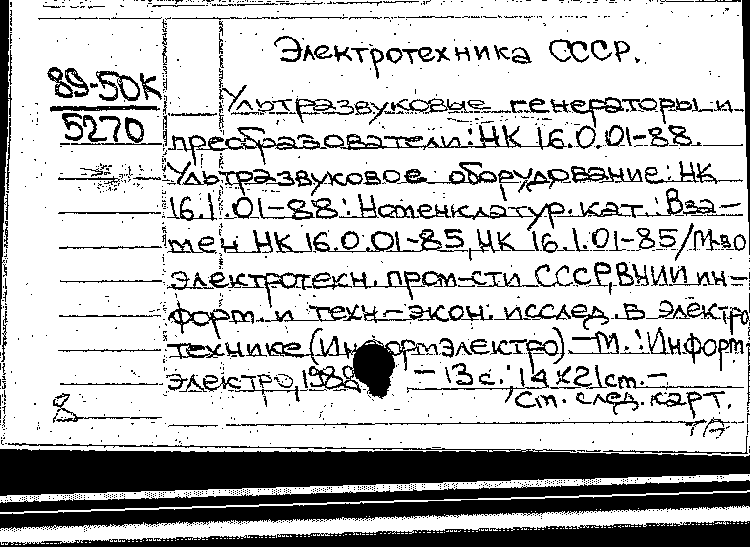 Электротехника СССР.
89-50К
5270
Ультразвуковые генераторы и
преобразователи: НК 16.0.01-88.
Ультразвуковое оборудование: НК
16.1.01-88: Номенклатур. кат.: Вза-
мен НК 16.0.01-85, НК 16.1.01-85/М-во
электротехн. пром-сти СССР, ВНИИ ин-
форм. и техн-экон. исслед. в электро
технике (Информэлектро). - М.: Информ-
электро, 1988 - 13 с.; 14х21 см. -
См. след. карт.
8